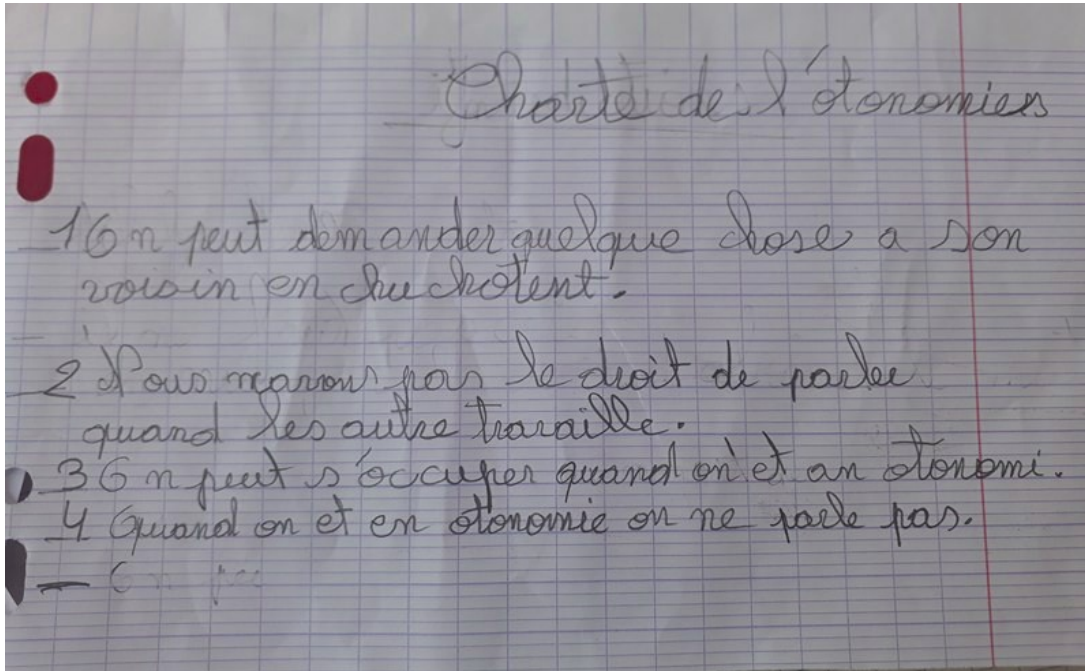 Charte de l'otonomies
1 On peut demander quelque chose a son
voisin en chuchotent.
2 Nous navons pas le droit de parler
quand les autre travaille.
3 On peut s'occuper quand on et an otonomi.
4 Quand on et en otonomie on ne parle pas.
— On peu